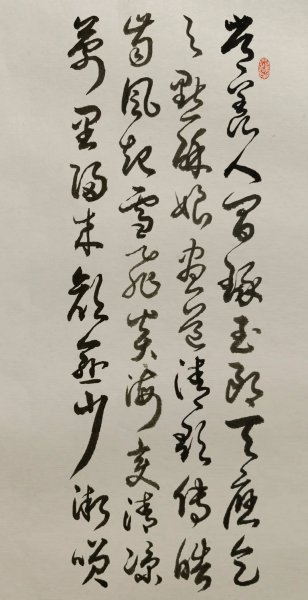 常羨人間琢玉郎天應乞
与點酥娘盡道清歌傳皓
齒風起雪飛炎海變清涼
萬里歸來顏愈少微笑